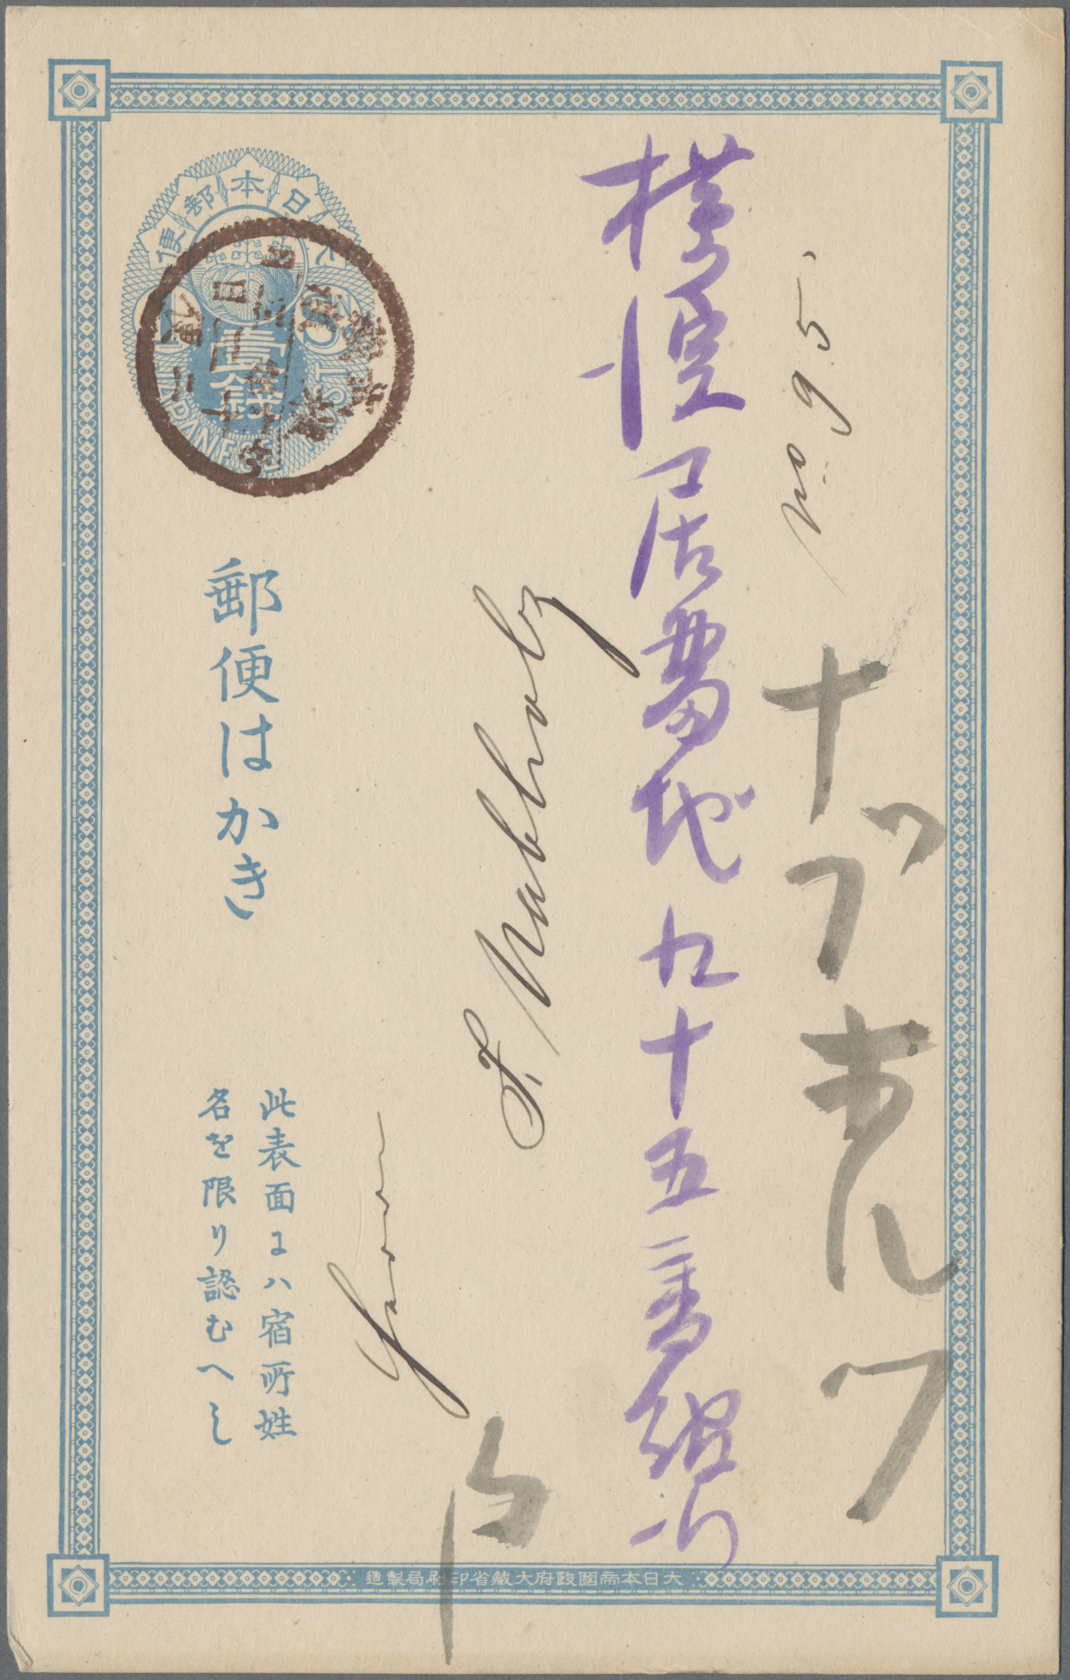 No. 95.
ナブホルツ
横濱居留地九十五番組行
F. Nabholz
大日本帝國郵便
壹錢
JAPANESE POST
郵便はかき
此表面ニハ宿所姓
名を限り認むへし
大日本帝國政府大藏省印刷局製造